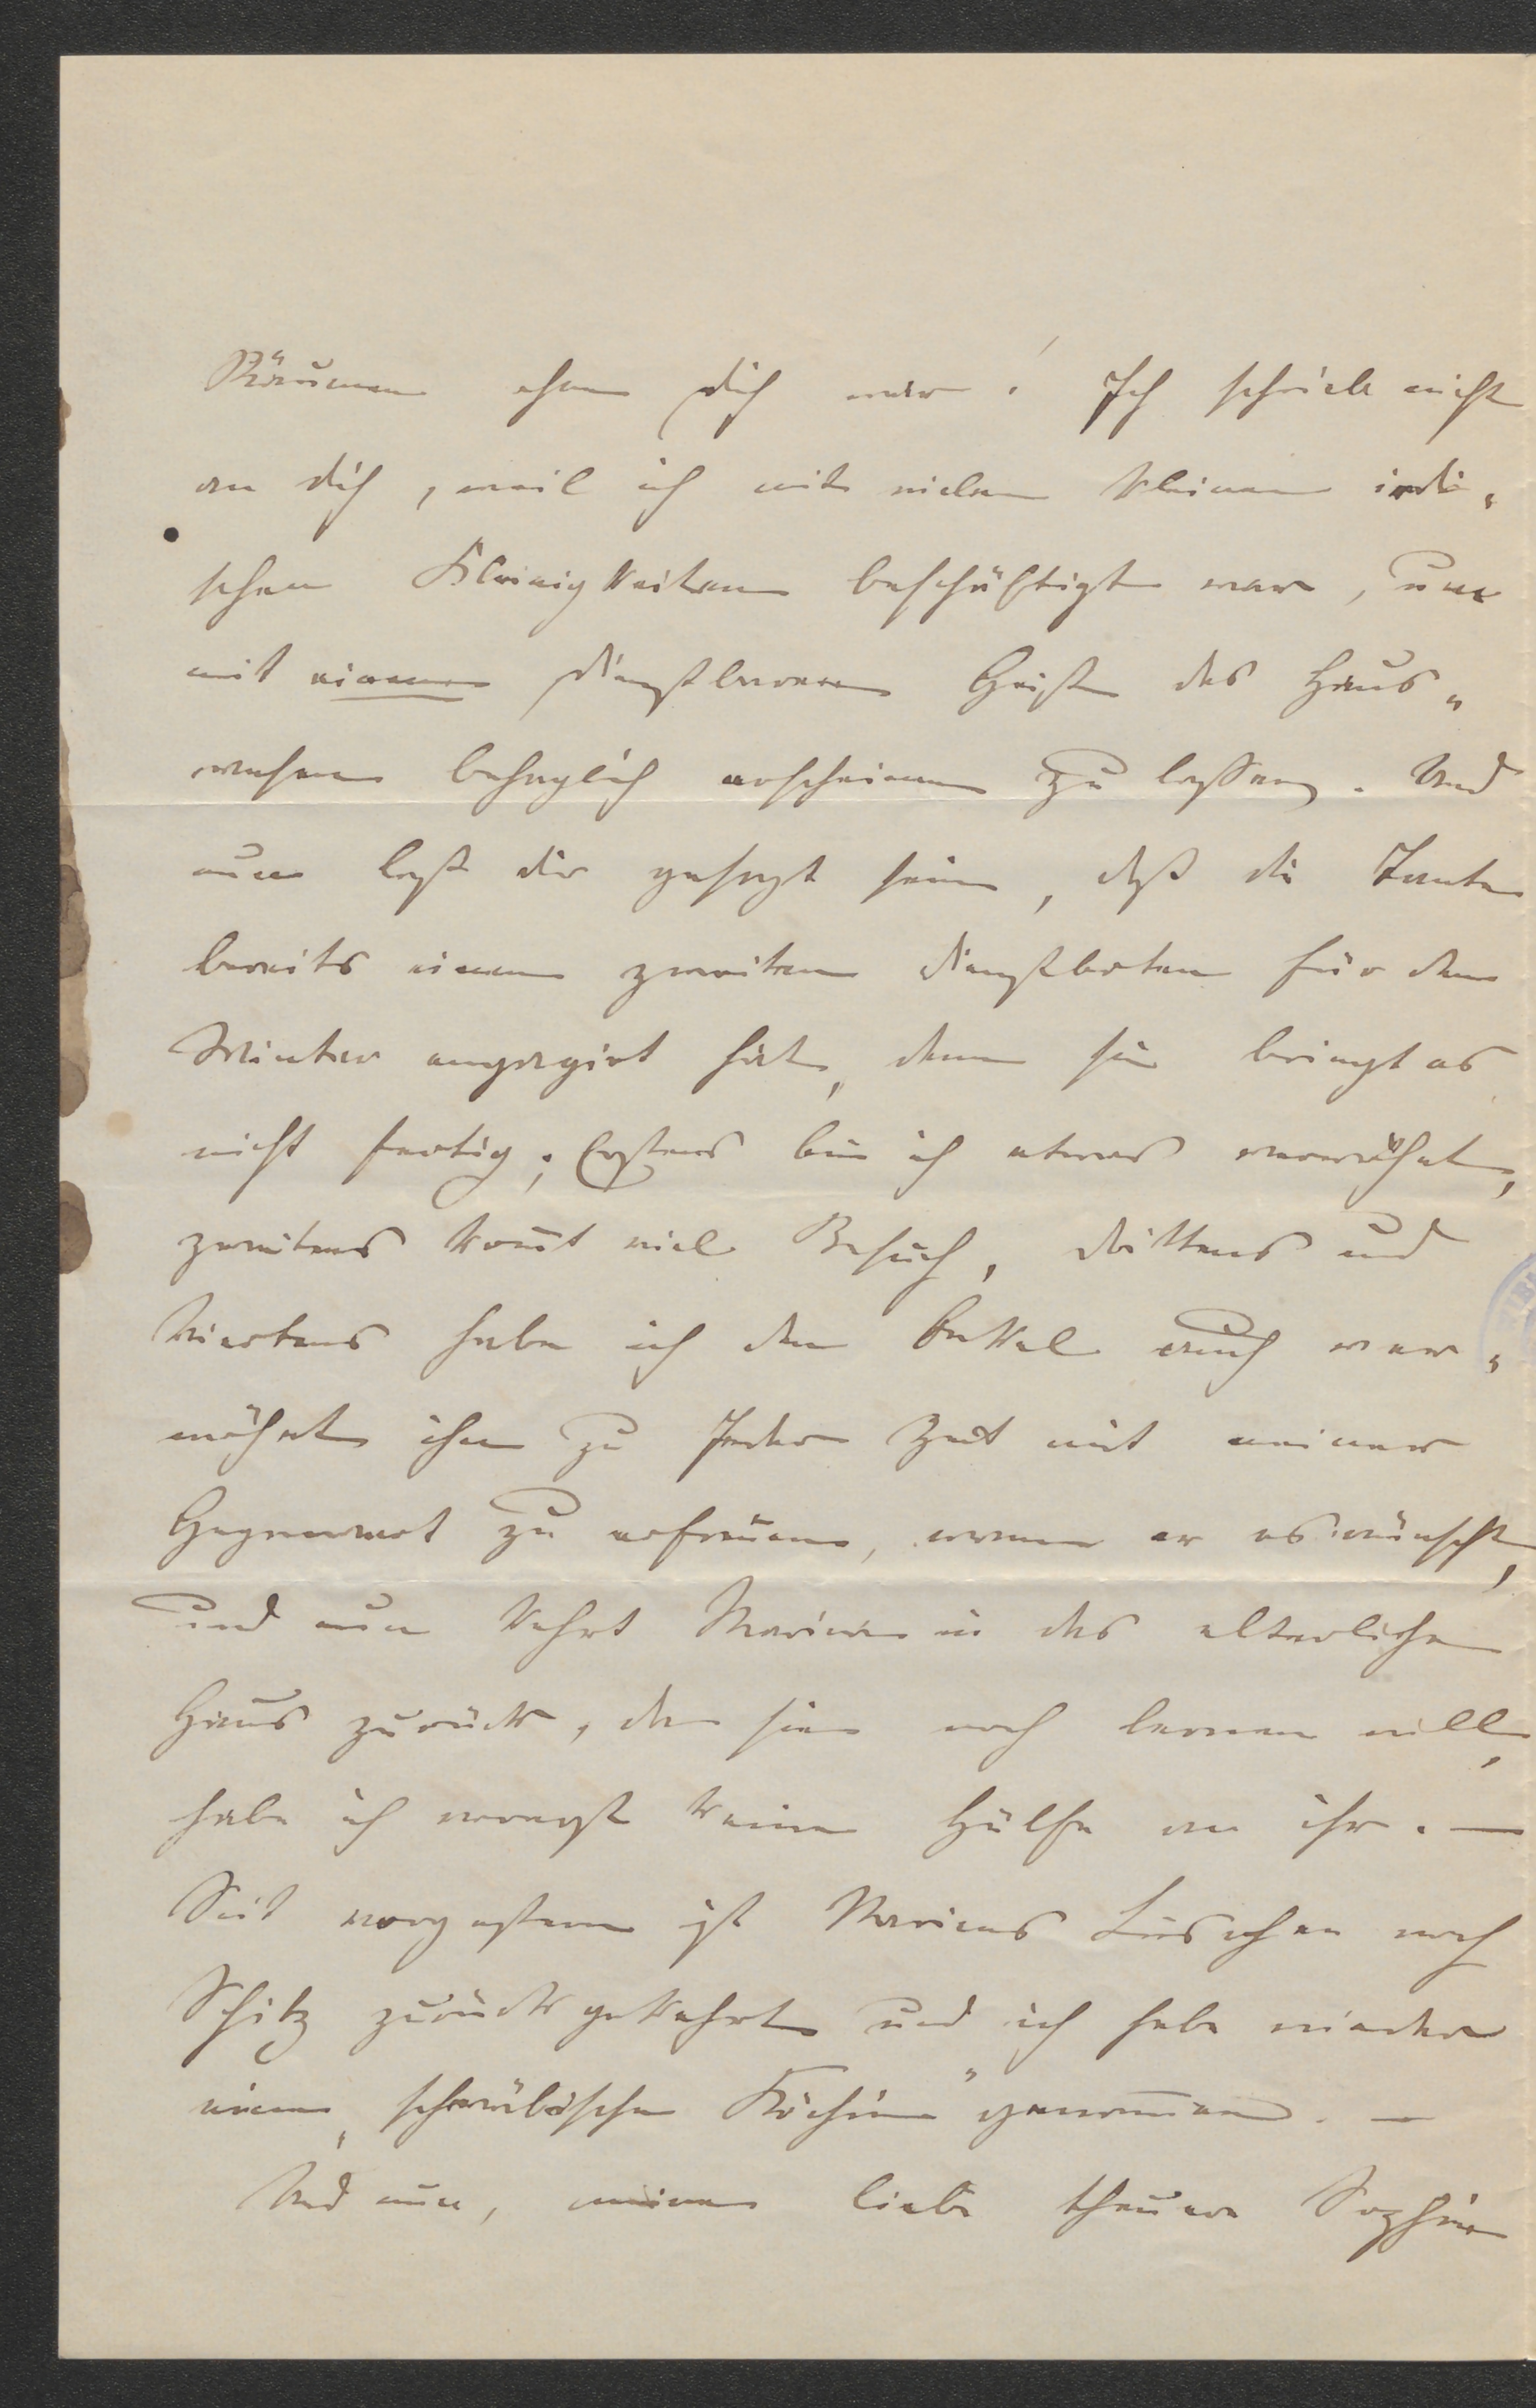 Räumen ohne dich war! Ich schrieb nicht
an dich, weil ich mit vielen kleinen irdi„
schen Kleinigkeiten beschäftigt war, um
mit einem dienstbaren Geist das Haus„
wesen behaglich erscheinen zu lassen. Und
nun laß dir gesagt sein, daß die Tante
bereits einen zweiten Dienstboten für den
Winter engagirt hat, denn sie bringt es
nicht fertig; Erstens bin ich etwas verwöhnt,
zweitens kom̄t viel Besuch, drittens und
Viertens habe ich den Onkel auch ver„
wöhnt ihn zu Jeder Zeit mit meiner
Gegenwart zu erfreuen, wenn er es wünscht,
und nun kehrt Marie in das elterliche
Haus zurück, da sie noch lernen will,
habe ich vorerst keine Hülfe an ihr. —
Seit vorgestern ist Mariens Lieschen nach
Schlitz zurückgekehrt und ich habe wieder
eine „schwäbische Köchin" genom̄en. —
Und nun, meine liebe theure Sophie